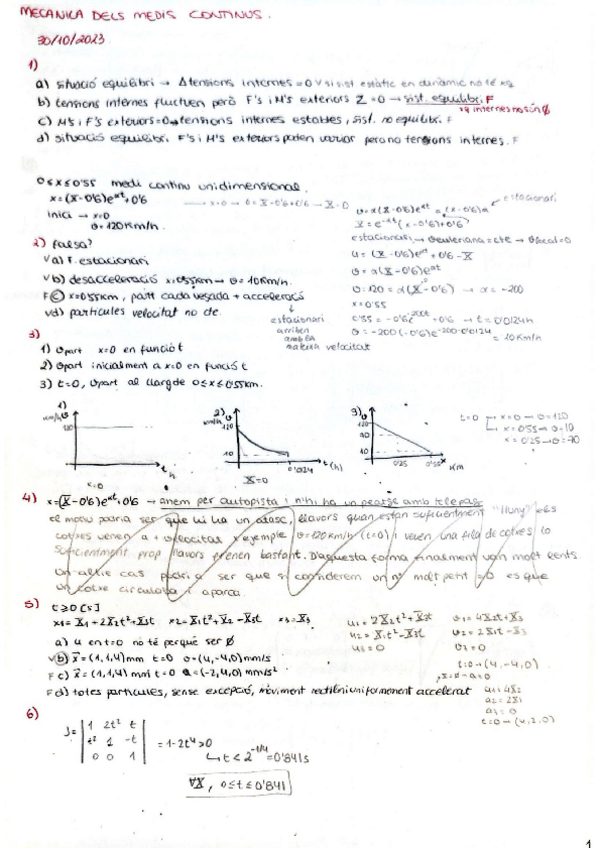 MECANICA DELS MEDIS CONTINUS.
30/10/2023
1)
a) situació equilibri → Δtensions internes = 0 V si sist estàtic en dinàmic no té xq
b) tensions internes fluctuen però F's i M's exteriors Σ = 0 → sist. equilibri F
xq internes no són 0
c) M's i F's exteriors = 0 → tensions internes estables, sist. no equilibri F
d) situació equilibri F's i M's exteriors poden variar pero no tensions internes. F
0≤x≤0'55 medi continu unidimensional.
x=(X-0'6)e^αt+0'6
→ x=0 → 0=X-0'6+0'6 → X=0
inici → x=0
v=120Km/h.
v=α(X-0'6)e^αt = (x-0'6)α
estacionari
X=e^-αt(x-0'6)+0'6
2) Falsa?
estacionari → v euleriana = cte → v local=0
V a) F. estacionari
u=(X-0'6)e^αt+0'6-X
V b) desacceleració x=0'55km → v=10Km/h.
v=α(X-0'6)e^αt
F c) x=0'55km, part cada vegada + acceleració
v=120=α(X-0'6) → α=-200
V d) partícules velocitat no cte.
estacionari arriben amb la mateixa velocitat
x=0'55
0'55=-0'6e^-200t+0'6 → t=0'0124h
v=-200(-0'6)e^-200·0'0124 = 10Km/h
3)
1) v part x=0 en funció t
2) v part inicialment a x=0 en funció t
3) t=0, v part al llarg de 0≤x≤0'55km.
1) v
km/h
120
t h
x=0
2) v
120
km/h
10
0'0124
t(h)
X=0
3) v
120
10
0'25 0'55 x Km
t=0 → x=0 → v=120
x=0'55 → v=10
x=0'25 → v=70
4) x=(X-0'6)e^αt+0'6 → anem per autopista i n'hi ha un peatge amb telepas
el motiu podria ser que hi ha un atasc, llavors quan estan suficientment "lluny" els
cotxes venen a velocitat x exemple v=120km/h (t=0) i veuen una fila de cotxes lo
suficientment prop llavors frenen bastant. D'aquesta forma finalment van molt lents
Un altre cas podria ser que si considerem un nº molt petit =0 es que
un cotxe circulava i aparca.
5) t≥0 [s]
x1=X1+2X2t²+X3t x2=X1t²+X2-X3t x3=X3
u1=2X2t²+X3t v1=4X2t+X3
u2=X1t²-X3t v2=2X1t-X3
u3=0 v3=0
a) u en t=0 no té perquè ser 0
V b) X=(1,1,4)mm t=0 v=(4,-4,0)mm/s
t=0→(4,-4,0)
F c) X=(1,1,4)mm t=0 a=(-2,4,0)mm/s²
F d) totes partícules, sense excepció, moviment rectilini uniformement accelerat
a1=4X2
a2=2X1
a3=0
t=0→(4,2,0)
6)
J= |1 2t² t|
|t² 1 -t| = 1-2t⁴>0
|0 0 1|
↳ t<2^-1/4=0'841s
∀X, 0≤t≤0'841
1